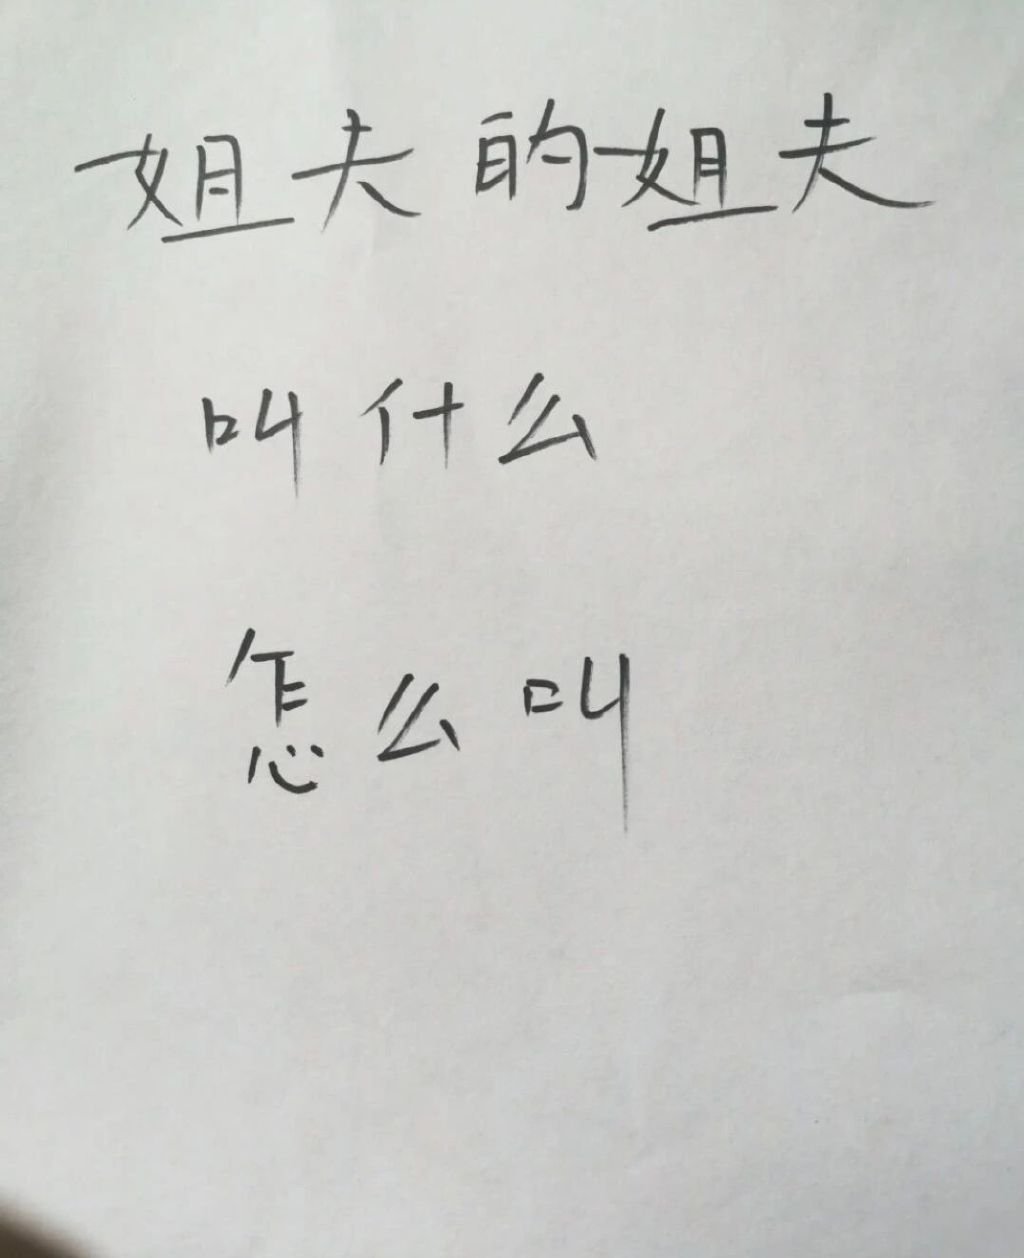 姐夫的姐夫
叫什么
怎么叫